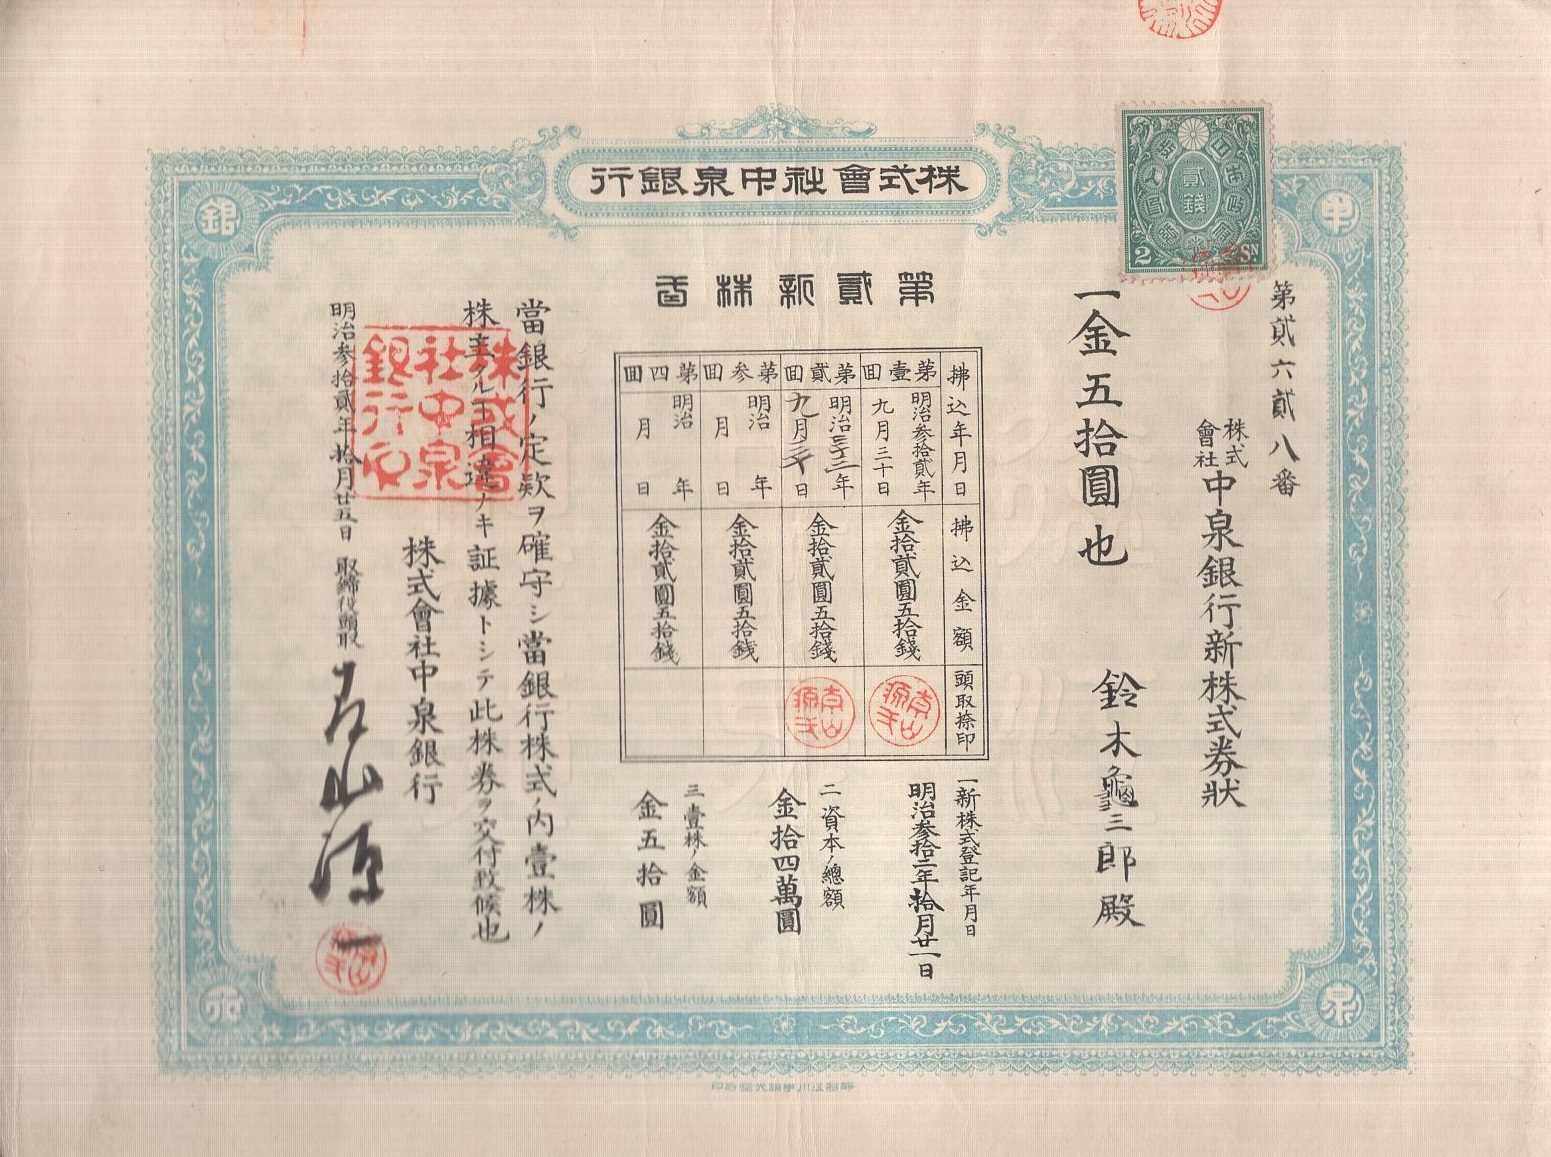 株式會社中泉銀行
第貳新株壹
第貳六貳八番
株式會社中泉銀行新株式券狀
一金五拾圓也
鈴木龜三郎殿
拂込年月日
拂込金額
頭取捺印
第壹回
明治参拾貳年九月三十日
金拾貳圓五拾錢
第貳回
明治三十三年九月三十日
金拾貳圓五拾錢
第参回
明治 年 月 日
金拾貳圓五拾錢
第四回
明治 年 月 日
金拾貳圓五拾錢
一新株式登記年月日
明治参拾二年拾月廿一日
二資本ノ總額
金拾四萬圓
三壹株ノ金額
金五拾圓
當銀行ノ定款ヲ確守シ當銀行株式ノ内壹株ノ
株主タルヿ相違ナキ証據トシテ此株券ヲ交付致候也
株式會社中泉銀行
明治参拾貳年拾月廿五日 取締役頭取
青山源一
株式會社中泉銀行印
貳錢
2 Sn
中
泉
銀
行